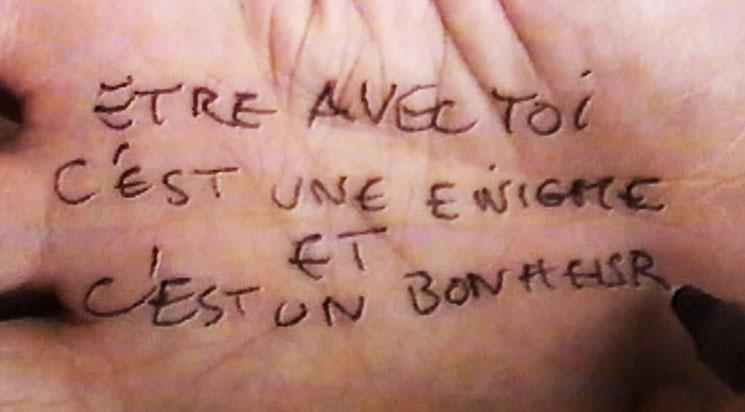 ETRE AVEC TOi
C'EST UNE ENIGME
ET
C'EST UN BONHEUR